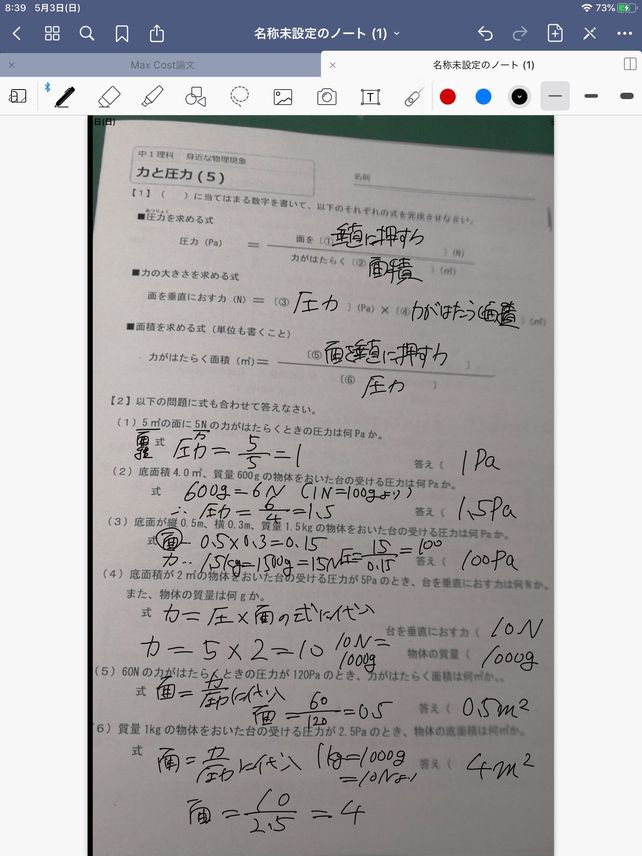 8:39 5月3日(日)
73%
名称未設定のノート (1)
Max Cost論文
名称未設定のノート (1)
日(日)
中1理科 身近な物理現象
力と圧力(5)
名前
【1】( )に当てはまる数字を書いて、以下のそれぞれの式を完成させなさい。
あつりょく
■圧力を求める式
圧力(Pa) = 面を〔① 垂直に押す力 〕(N)
力がはたらく〔② 面積 〕(㎡)
■力の大きさを求める式
面を垂直におす力(N)=〔③ 圧力 〕(Pa)×〔④ 力がはたらく面積 〕(㎡)
■面積を求める式(単位も書くこと)
力がはたらく面積(㎡)= 〔⑤ 面を垂直に押す力 〕
〔⑥ 圧力 〕
【2】以下の問題に式も合わせて答えなさい。
(1)5㎡の面に5Nの力がはたらくときの圧力は何Paか。
面積 力
式 圧力 = 5/5 = 1 答え( 1Pa
(2)底面積4.0㎡、質量600gの物体をおいた台の受ける圧力は何Paか。
式 600g=6N (1N=100gより)
∴ 圧力 = 6/4 = 1.5 答え( 1.5Pa
(3)底面が縦0.5m、横0.3m、質量1.5kgの物体をおいた台の受ける圧力は何Paか。
式 面‥ 0.5×0.3=0.15
力‥ 1.5kg=1500g=15N 圧= 15/0.15 =100 答え( 100Pa
(4)底面積が2㎡の物体をおいた台の受ける圧力が5Paのとき、台を垂直におす力は何Nか。
また、物体の質量は何gか。
式 力 = 圧 × 面の式に代入
台を垂直におす力( 10N
力 = 5×2=10 10N=1000g 物体の質量( 1000g
(5)60Nの力がはたらくときの圧力が120Paのとき、力がはたらく面積は何㎡か。
式 面 = 力/圧力 に代入
面 = 60/120 =0.5 答え( 0.5m²
(6)質量1kgの物体をおいた台の受ける圧力が2.5Paのとき、物体の底面積は何㎡か。
式 面 = 力/圧力 に代入 (1kg=1000g
=10Nより 答え( 4m²
面 = 10/2.5 = 4